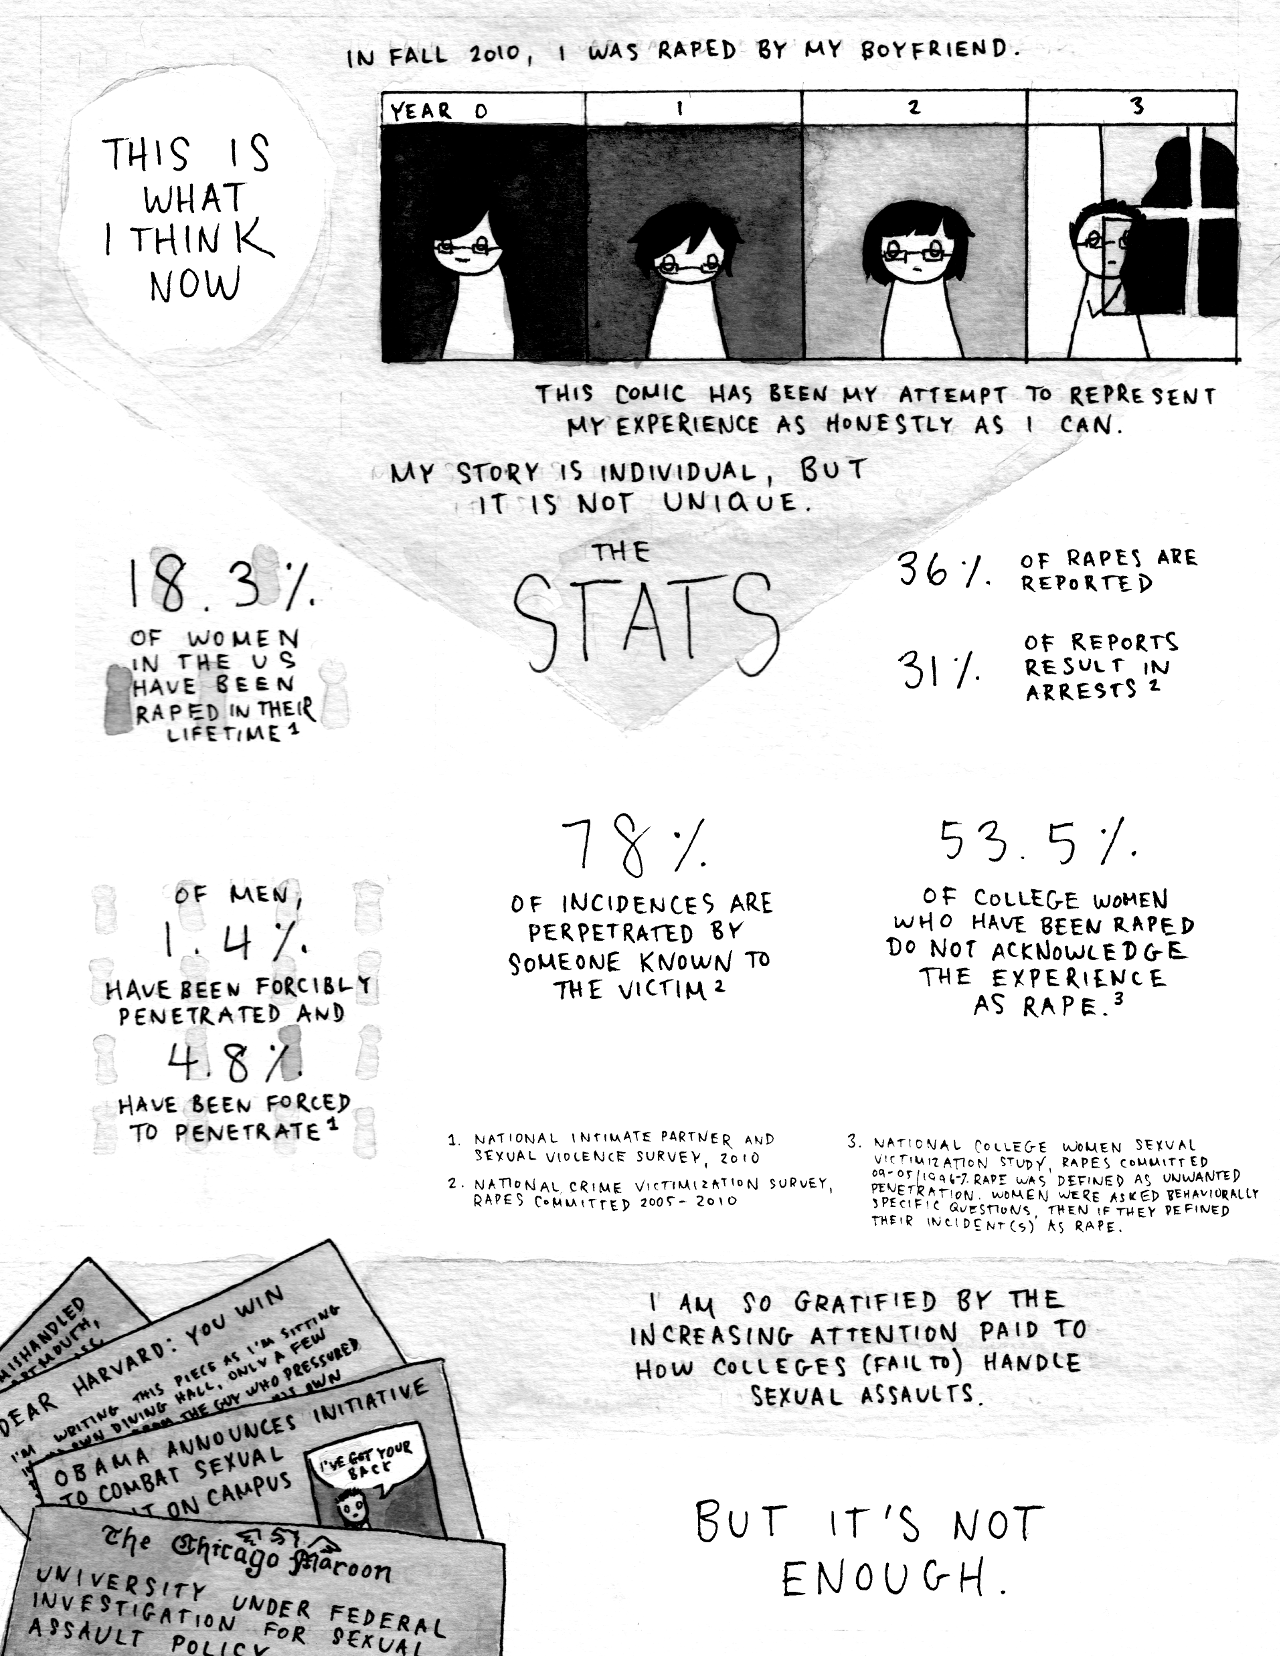 IN FALL 2010, I WAS RAPED BY MY BOYFRIEND.
THIS IS
WHAT
I THINK
NOW
YEAR 0
1
2
3
THIS COMIC HAS BEEN MY ATTEMPT TO REPRESENT
MY EXPERIENCE AS HONESTLY AS I CAN.
MY STORY IS INDIVIDUAL, BUT
IT IS NOT UNIQUE.
THE
STATS
18.3%
OF WOMEN
IN THE US
HAVE BEEN
RAPED IN THEIR
LIFETIME 1
36%
OF RAPES ARE
REPORTED
31%
OF REPORTS
RESULT IN
ARRESTS 2
OF MEN,
1.4%
HAVE BEEN FORCIBLY
PENETRATED AND
4.8%
HAVE BEEN FORCED
TO PENETRATE 1
78%
OF INCIDENCES ARE
PERPETRATED BY
SOMEONE KNOWN TO
THE VICTIM 2
53.5%
OF COLLEGE WOMEN
WHO HAVE BEEN RAPED
DO NOT ACKNOWLEDGE
THE EXPERIENCE
AS RAPE. 3
1. NATIONAL INTIMATE PARTNER AND
SEXUAL VIOLENCE SURVEY, 2010
2. NATIONAL CRIME VICTIMIZATION SURVEY,
RAPES COMMITTED 2005-2010
3. NATIONAL COLLEGE WOMEN SEXUAL
VICTIMIZATION STUDY, RAPES COMMITTED
09-05/1996-7. RAPE WAS DEFINED AS UNWANTED
PENETRATION. WOMEN WERE ASKED BEHAVIORALLY
SPECIFIC QUESTIONS, THEN IF THEY DEFINED
THEIR INCIDENT(S) AS RAPE.
MISHANDLED
DEAR HARVARD: YOU WIN
I'M WRITING THIS PIECE AS I'M SITTING
OWN DINING HALL, ONLY A FEW
FROM THE GUY WHO PRESSURED
OWN
OBAMA ANNOUNCES INITIATIVE
TO COMBAT SEXUAL
ON CAMPUS
I'VE GOT YOUR
BACK
The Chicago Maroon
UNIVERSITY UNDER FEDERAL
INVESTIGATION FOR SEXUAL
ASSAULT POLICY
I AM SO GRATIFIED BY THE
INCREASING ATTENTION PAID TO
HOW COLLEGES (FAIL TO) HANDLE
SEXUAL ASSAULTS.
BUT IT'S NOT
ENOUGH.